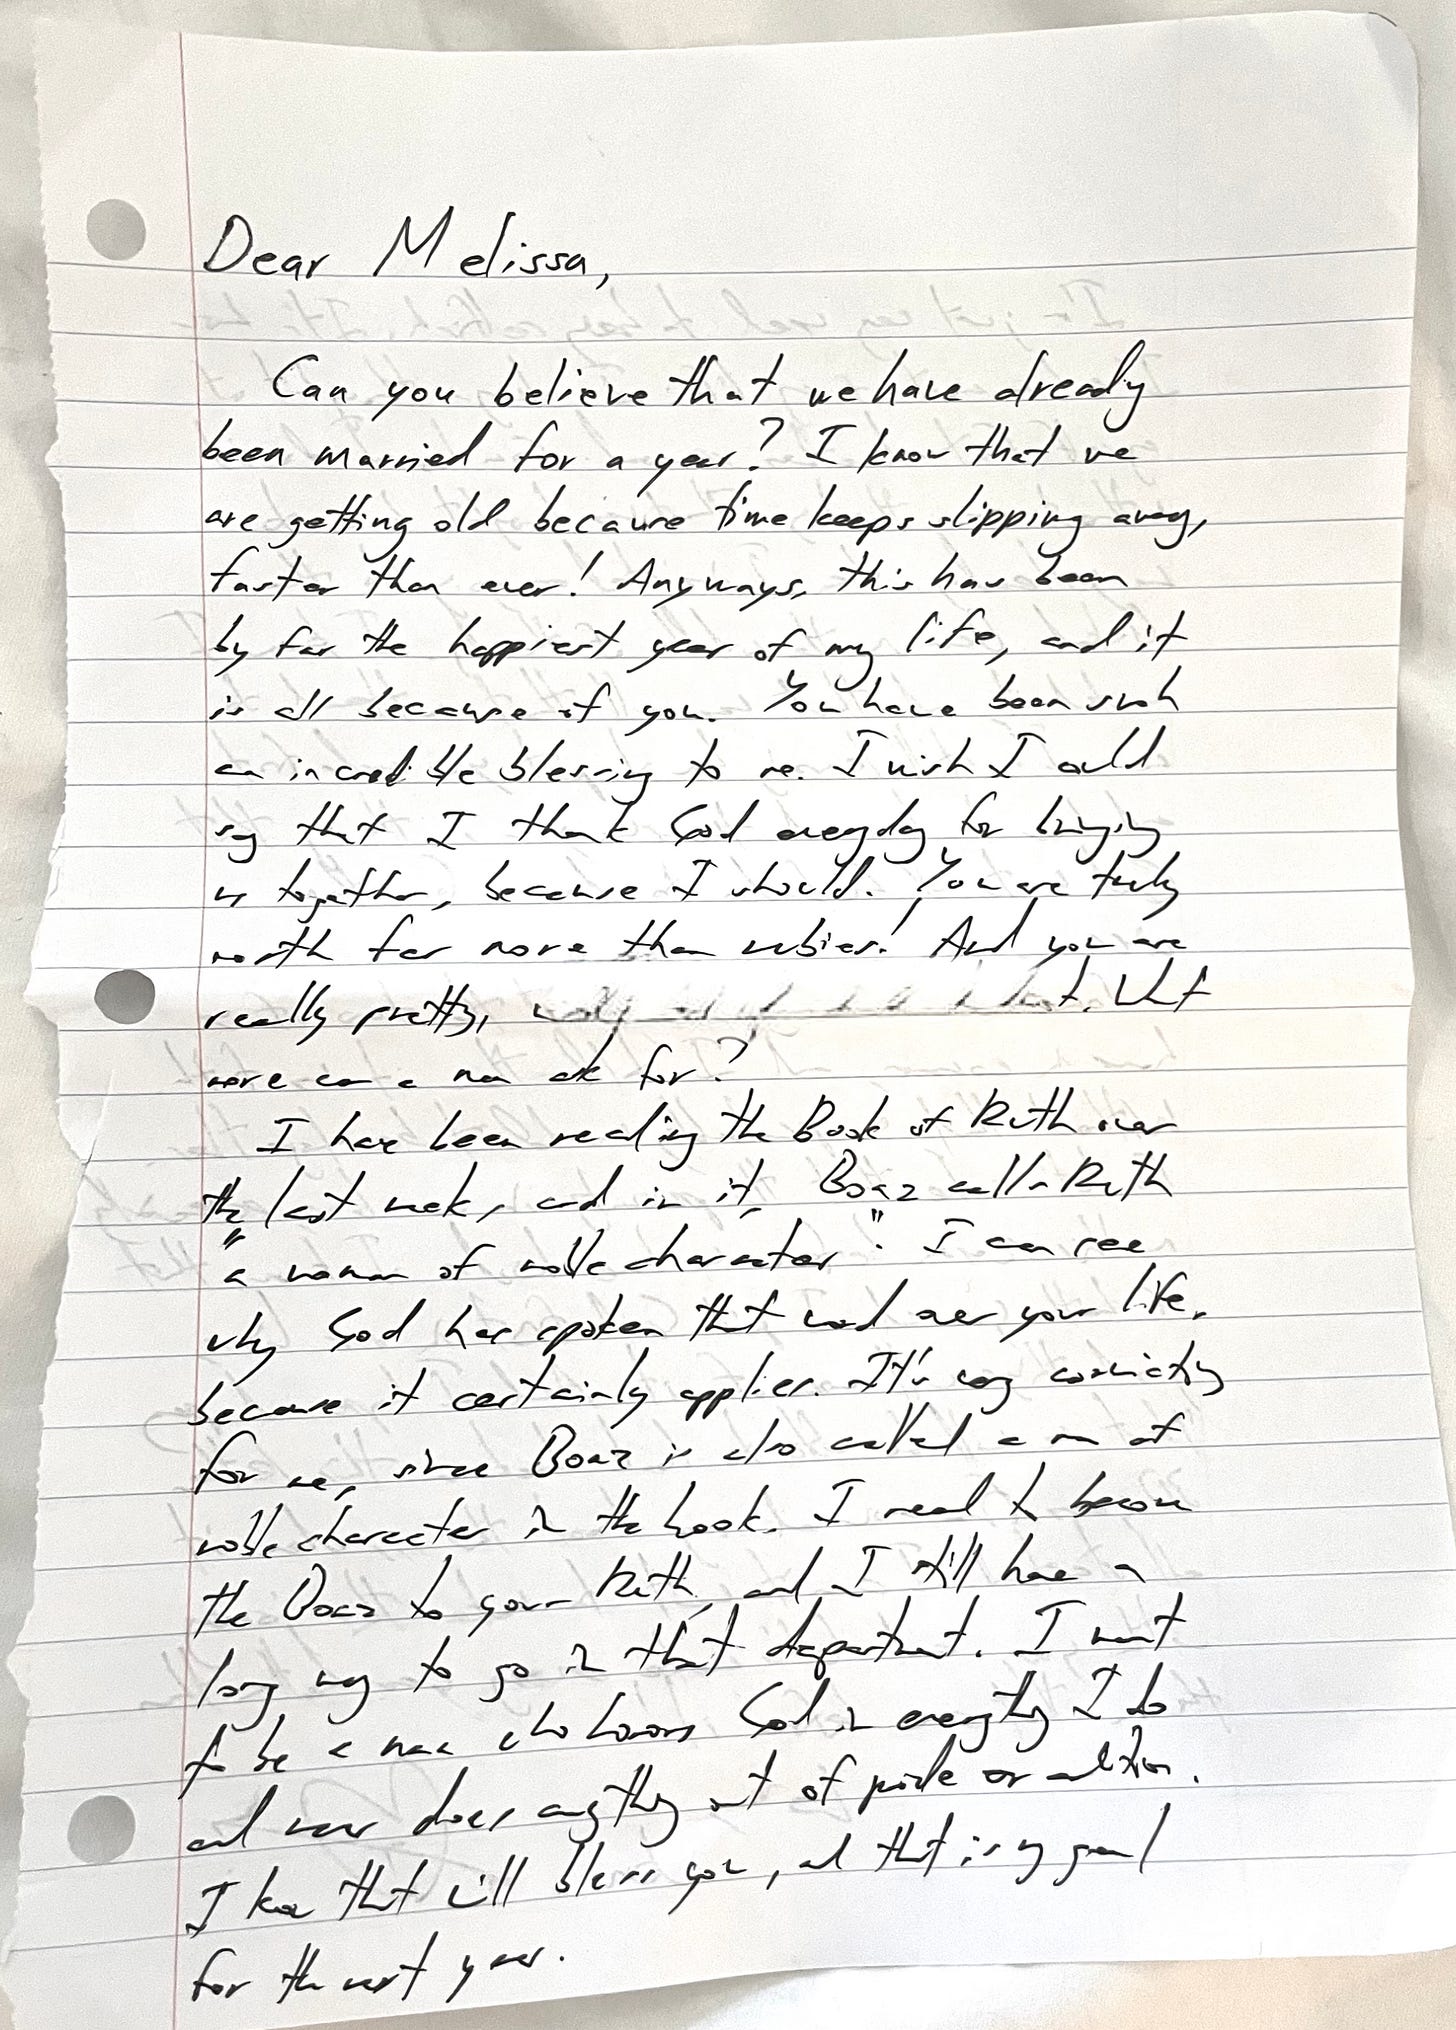 Dear Melissa,
Can you believe that we have already
been married for a year? I know that we
are getting old because time keeps slipping away,
faster than ever! Anyways, this has been
by far the happiest year of my life, and it
is all because of you. You have been such
an incredible blessing to me. I wish I could
say that I thank God everyday for bringing
us together, because I should. You are truly
worth far more than rubies! And you are
really pretty, What
more can a man ask for?
I have been reading the Book of Ruth over
the last week, and in it, Boaz calls Ruth
"a woman of noble character". I can see
why God has spoken that word over your life,
because it certainly applies. It's very convicting
for me, since Boaz is also called a man of
noble character in the book. I need to become
the Boaz to your Ruth, and I still have a
long way to go in that department. I want
to be a man who honors God in everything I do
and never does anything out of pride or ambition.
I know that will bless you, and that is my goal
for the next year.